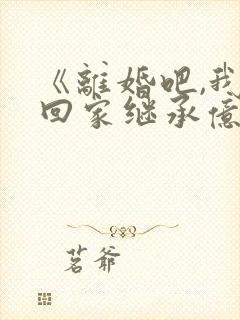 《離婚吧,我
回家继承億
茗爷